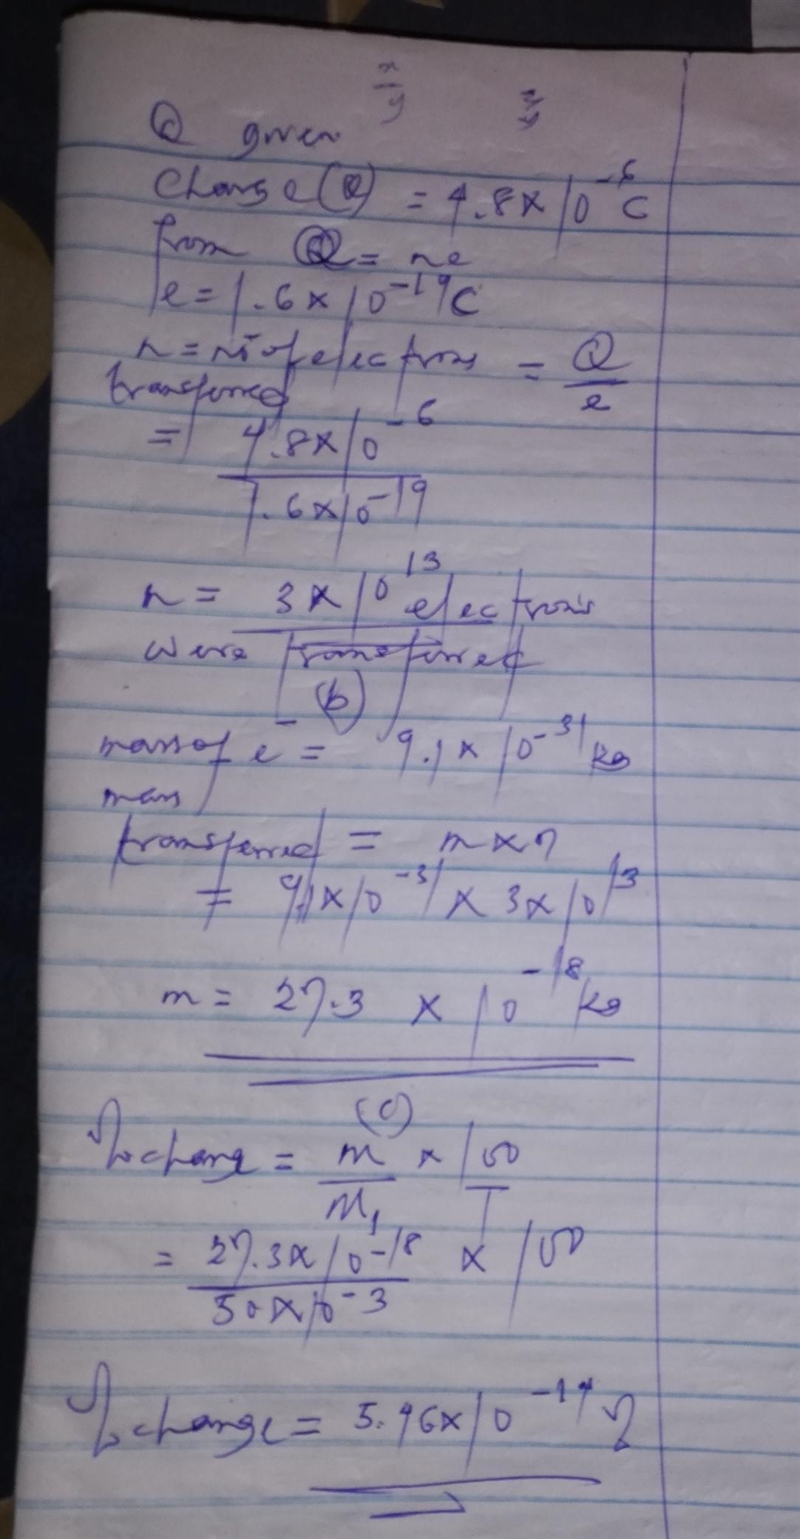 x
y
Q given
Charge (Q) = 4.8 x 10^-6 C
from Q = ne
e = 1.6 x 10^-19 C
n = no of electrons = Q
transferred e
= 4.8 x 10^-6
1.6 x 10^-19
n = 3 x 10^13 electrons
were transferred
(b)
mass of e^- = 9.1 x 10^-31 kg
mass
transferred = m x n
= 9.1 x 10^-31 x 3 x 10^13
m = 27.3 x 10^-18 kg
(c)
% change = m x 100
M1 1
= 27.3 x 10^-18 x 100
50 x 10^-3
% change = 5.46 x 10^-14 %